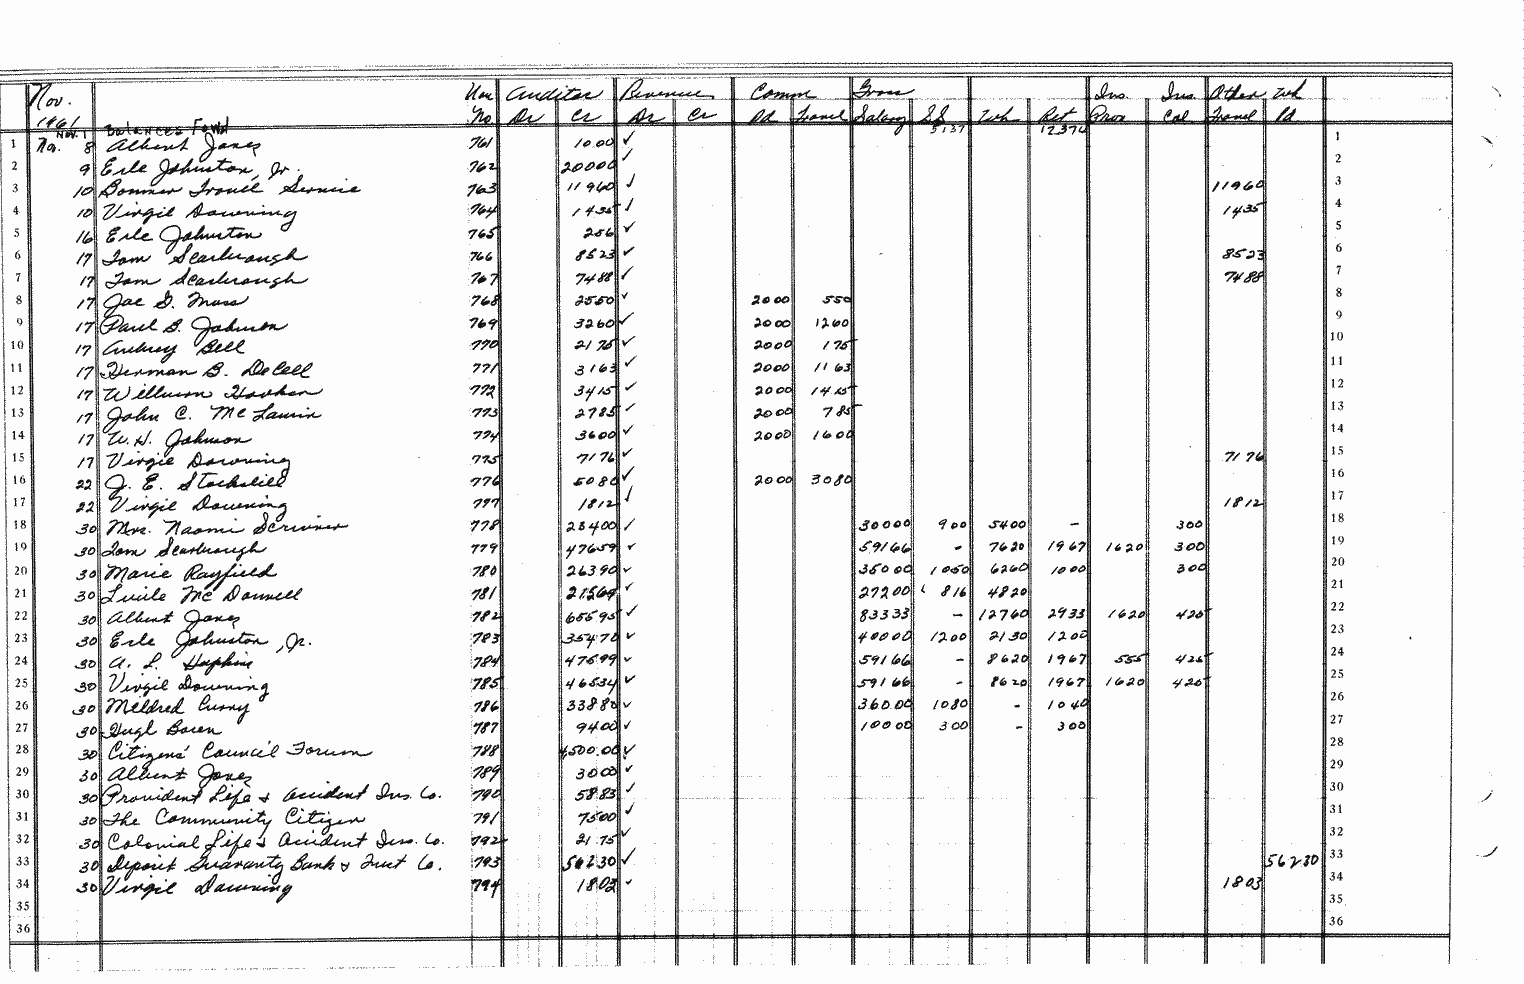 Nov. Auditor Revenue Comm Gross Ins. Ins. Other Wh
1961 No. Dr Cr Dr Cr Pd Travel Salary SS Wh Ret Prov Col Travel Pd
Nov. 1 Balances Fowd 5137 12374
1 Nov. 8 Albert Jones 761 1000 ✓ 1
2 9 Erle Johnston, Jr. 762 20000 ✓ 2
3 10 Bonner Travel Service 763 11960 ✓ 11960 3
4 10 Virgil Downing 764 1435 ✓ 1435 4
5 16 Erle Johnston 765 256 ✓ 5
6 17 Tom Scarbrough 766 8523 ✓ 8523 6
7 17 Tom Scarbrough 767 7488 ✓ 7488 7
8 17 Joe G. Moss 768 2550 ✓ 2000 550 8
9 17 Paul B. Johnson 769 3260 ✓ 2000 1260 9
10 17 Aubrey Bell 770 2175 ✓ 2000 175 10
11 17 Herman B. DeCell 771 3163 ✓ 2000 1163 11
12 17 Wilburn Hooker 772 3415 ✓ 2000 1415 12
13 17 John C. McLaurin 773 2785 ✓ 2000 785 13
14 17 W. H. Johnson 774 3600 ✓ 2000 1600 14
15 17 Virgil Downing 775 7176 ✓ 7176 15
16 22 J. E. Stockstill 776 5080 ✓ 2000 3080 16
17 22 Virgil Downing 777 1812 ✓ 1812 17
18 30 Mrs. Naomi Scrivner 778 23400 ✓ 30000 900 5400 - 300 18
19 30 Tom Scarbrough 779 47659 ✓ 59166 - 7620 1967 1620 300 19
20 30 Marie Rayfield 780 26390 ✓ 35000 1050 6260 1000 300 20
21 30 Lucile McDonnell 781 21564 ✓ 27200 816 4820 21
22 30 Albert Jones 782 65595 ✓ 83333 - 12760 2933 1620 425 22
23 30 Erle Johnston, Jr. 783 35470 ✓ 40000 1200 2130 1200 23
24 30 A. L. Hopkins 784 47599 ✓ 59166 - 8620 1967 555 425 24
25 30 Virgil Downing 785 46534 ✓ 59166 - 8620 1967 1620 425 25
26 30 Mildred Curry 786 33880 ✓ 36000 1080 - 1040 26
27 30 Hugh Boren 787 9400 ✓ 10000 300 - 300 27
28 30 Citizens' Council Forum 788 4,500.00 ✓ 28
29 30 Albert Jones 789 3000 ✓ 29
30 30 Provident Life & Accident Ins. Co. 790 5883 ✓ 30
31 30 The Community Citizen 791 7500 ✓ 31
32 30 Colonial Life & Accident Ins. Co. 792 2175 ✓ 32
33 30 Deposit Guaranty Bank & Trust Co. 793 56230 ✓ 56230 33
34 30 Virgil Downing 794 1803 ✓ 1803 34
35 35
36 36